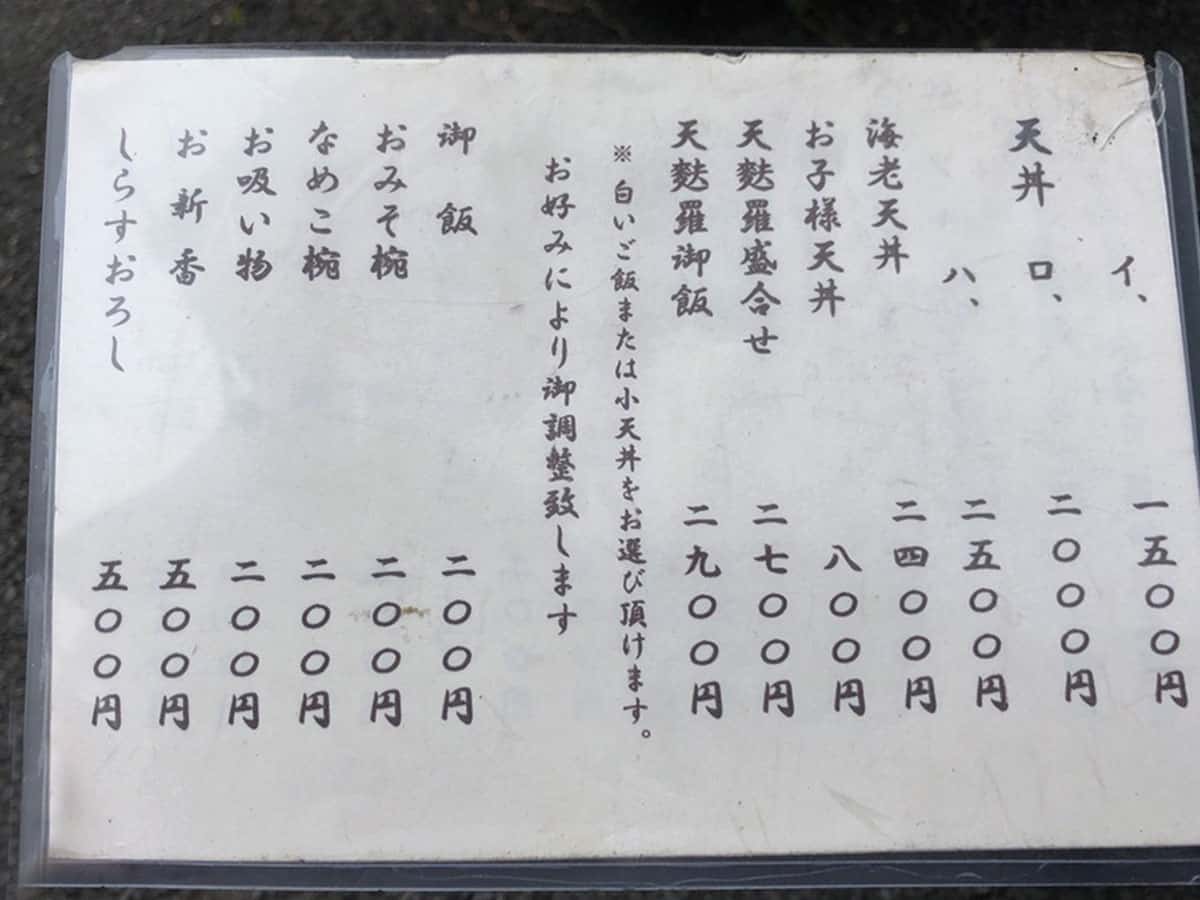 イ、 一五〇〇円
天丼 ロ、 二〇〇〇円
ハ、 二五〇〇円
海老天丼 二四〇〇円
お子様天丼 八〇〇円
天麩羅盛合せ 二七〇〇円
天麩羅御飯 二九〇〇円
※白いご飯または小天丼をお選び頂けます。
お好みにより御調整致します
御飯 二〇〇円
おみそ椀 二〇〇円
なめこ椀 二〇〇円
お吸い物 二〇〇円
お新香 五〇〇円
しらすおろし 五〇〇円